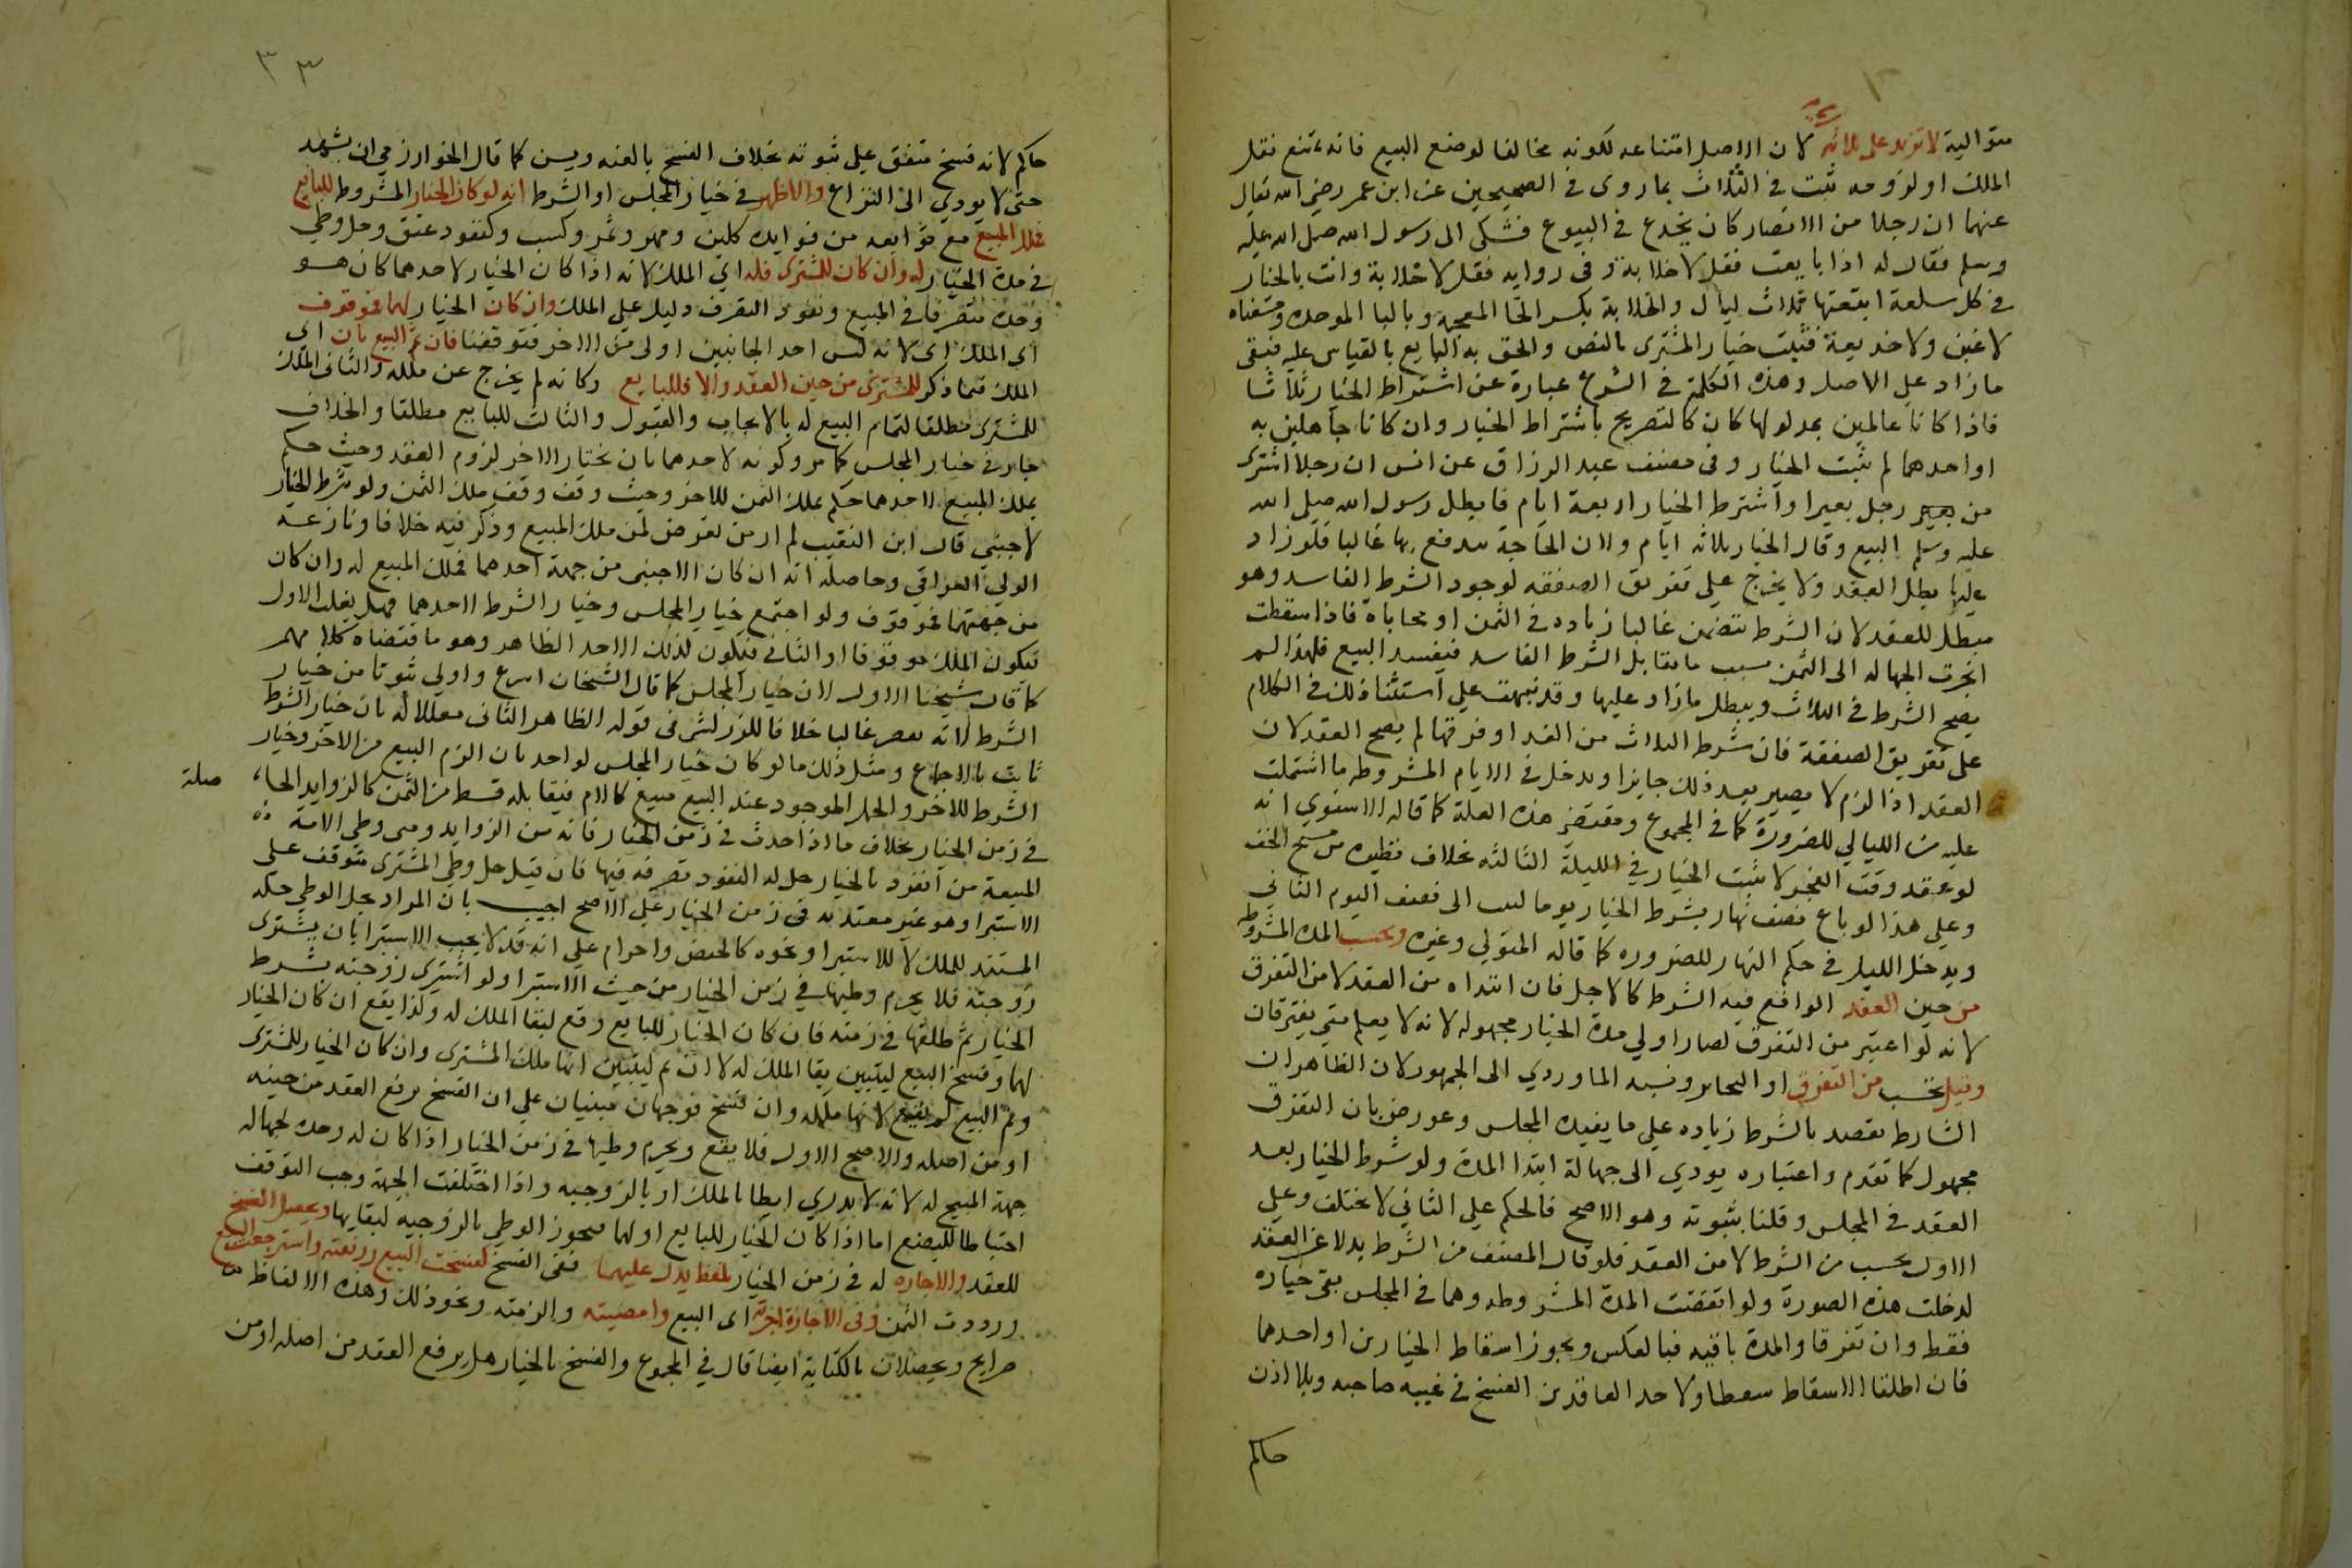 متوالية لا تزيد على ثلاثه لان الاصل امتناعه لكونه مخالفا لوضع البيع فانه يمنع نقل
الملك او لزومه ثبت في الثلاث بما روى في الصحيحين عن ابن عمر رضي الله تعالى
عنهما ان رجلا من الانصار كان يخدع في البيوع فشكى الى رسول الله صلى الله عليه
وسلم فقال له اذا بايعت فقل لا خلابة وفى روايه فقل لا خلابة وانت بالخيار
في كل سلعة ابتعتها ثلاث ليال والخلابة بكسر الخا المعجمه وبالبا الموحده ومعناه
لا غبن ولا خديعة فثبت خيار المشترى بالنص والحق به البايع بالقياس عليه فبقى
ما زاد على الاصل وهذه الكلمة في الشرع عبارة عن اشتراط الخيار ثلاثا
فاذا كانا عالمين بمدلولها كان كالتصريح باشتراط الخيار وان كانا جاهلين به
او احدهما لم يثبت الخيار وفى مصنف عبد الرزاق عن انس ان رجلا اشترى
من رجل بعيرا واشترط الخيار اربعة ايام فابطل رسول الله صلى الله
عليه وسلم البيع وقال الخيار ثلاثه ايام ولان الحاجة تندفع بها غالبا فلو زاد
عليها بطل العقد ولا يخرج على تفريق الصفقه لوجود الشرط الفاسد وهو
مبطل للعقد لان الشرط يتضمن غالبا زياده في الثمن او محاباة فاذا سقطت
انجرت الجهاله الى الثمن بسبب ما يقابل الشرط الفاسد فيفسد البيع فلهذا لم
يصح الشرط في الثلاث ويبطل ما زاد عليها وقد نبهت على استثنا ذلك في الكلام
على تفريق الصفقة فان شرط الثلاث من الغد او فرقها لم يصح العقد لان
العقد اذا لزم لا يصير بعد ذلك جايزا ويدخل في الايام المشروطه ما اشتملت
عليه من الليالي للضرورة كما في المجموع ومقتضى هذه العلة كما قاله الاسنوي انه
لو عقد وقت الفجر لا يثبت الخيار في الليلة الثالثه بخلاف نظيره من مسح الخف
وعلى هذا لو باع نصف نهار بشرط الخيار يوما ثبت الى نصف اليوم الثاني
ويدخل الليل في حكم النهار للضروره كما قاله المتولي وغيره وتحسب المدة المشروطه
من حين العقد الواقع فيه الشرط كالاجل فان ابتداه من العقد لا من التفرق
لانه لو اعتبر من التفرق لصار اولي مدة الخيار مجهوله لانه لا يعلم متى يفترقان
وقيل تحسب من التفرق او التخاير ونسبه الماوردي الى الجمهور لان الظاهر ان
الشارط يقصد بالشرط زياده على ما يفيده المجلس وعورض بان التفرق
مجهول كما تقدم واعتباره يودي الى جهالة ابتدا المدة ولو شرط الخيار بعد
العقد في المجلس وقلنا بثبوته وهو الاصح فالحكم على الثاني لا يختلف وعلى
الاول يحسب من الشرط لا من العقد فلو قال المصنف من الشرط بدلا عن العقد
لدخلت هذه الصورة ولو انقضت المدة المشروطه وهما في المجلس بقى خياره
فقط وان تفرقا والمدة باقيه فبالعكس ويجوز اسقاط الخيارين او احدهما
فان اطلقا الاسقاط سقطا ولاحد العاقدين الفسخ في غيبه صاحبه وبلا اذن
حاكم
٣٣
حاكم لانه فسخ متفق على ثبوته بخلاف الفسخ بالعنه ويسن كما قال الخوارزمي ان يشهد
حتى لا يودي الى النزاع والاظهر في خيار المجلس او الشرط انه لو كان الخيار المشروط للبايع
فملك المبيع مع توابعه من فوايده كلبن ومهر وثمر وكسب وكنفود عتق وحل وطي
في مدة الخيار له وان كان للمشترى فله اي الملك لانه اذا كان الخيار لاحدهما كان هو
وحده متصرفا في المبيع ونفوذ التصرف دليل على الملك وان كان الخيار لهما فموقوف
اى الملك اى لانه ليس احد الجانبين اولى من الاخر فتوقفنا فان تم البيع بان اى
الملك فيما ذكر للمشترى من حين العقد والا فللبايع وكانه لم يخرج عن ملكه والثانى الملك
للمشترى مطلقا لتمام البيع له بالايجاب والقبول والثالث للبايع مطلقا والخلاف
جار في خيار المجلس كما مر وكونه لاحدهما بان يختار الاخر لزوم العقد وحيث حكم
بملك المبيع لاحدهما حكم بملك الثمن للاخر وحيث وقف وقف ملك الثمن ولو شرط الخيار
لاجنبي قال ابن النقيب لم ار من تعرض لمن ملك المبيع وذكر فيه خلافا ونازعه
الولي العراقي وحاصله انه ان كان الاجنبى من جهة احدهما فملك المبيع له وان كان
من جهتهما فموقوف ولو اجتمع خيار المجلس وخيار الشرط لاحدهما فهل يغلب الاول
فيكون الملك موقوفا او الثاني فيكون لذلك الاحد الظاهر وهو ما اقتضاه كلامهم
كما قال شيخنا الاول لان خيار المجلس كما قال الشيخان اسرع واولى ثبوتا من خيار
الشرط لانه اقصر غالبا خلافا للزركشى فى قوله الظاهر الثانى معللا له بان خيار الشرط
ثابت بالاجماع ومثل ذلك ما لو كان خيار المجلس لواحد بان الزم البيع من الاخر وخيار
الشرط للاخر والحمل الموجود عند البيع مبيع كالام فيقابله قسط من الثمن كالزوايد الحا، صلة
في زمن الخيار بخلاف ما اذا حدث في زمن الخيار فانه من الزوايد ومتى وطي الامة
المبيعة من انفرد بالخيار حل له لنفوذ تصرفه فيها فان قيل حل وطى المشترى متوقف على
الاستبرا وهو غير معتد به فى زمن الخيار على الاصح اجيب بان المراد بحل الوطي حله
المستند للملك لا للاستبرا ونحوه كالحيض واحرام على انه قد لا يجب الاستبرا بان يشترى
زوجته فلا يحرم وطيها في زمن الخيار من حيث الاستبرا ولو اشترى زوجته بشرط
الخيار ثم طلقها في زمنه فان كان الخيار للبايع وقع لبقا الملك له وكذا يقع ان كان الخيار
لهما وفسخ البيع ليتبين بقا الملك له لا ان تم ليتبين انها ملك المشترى وان كان الخيار للمشترى
وتم البيع لم يقع لانها ملكه وان فسخ فوجهان مبنيان على ان الفسخ يرفع العقد من حينه
او من اصله والاصح الاول فلا يقع ويحرم وطيها في زمن الخيار اذا كان له وحده لجهاله
جهة المبيح له لانه لا يدري ايطا بالملك او بالزوجيه واذا اختلفت الجهة وجب التوقف
احتياطا للبضع اما اذا كان الخيار للبايع او لهما فيجوز الوطي بالزوجيه لبقايها ويحصل الفسخ
للعقد والاجازه له في زمن الخيار بلفظ يدل عليهما ففى الفسخ كفسخت البيع ورفعته واسترجعت المبيع
ورددت الثمن وفى الاجازة اجزته اى البيع وامضيته والزمته ونحو ذلك وهذه الالفاظ
صرايح ويحصلان بالكناية ايضا قال في المجموع والفسخ بالخيار هل يرفع العقد من اصله او من